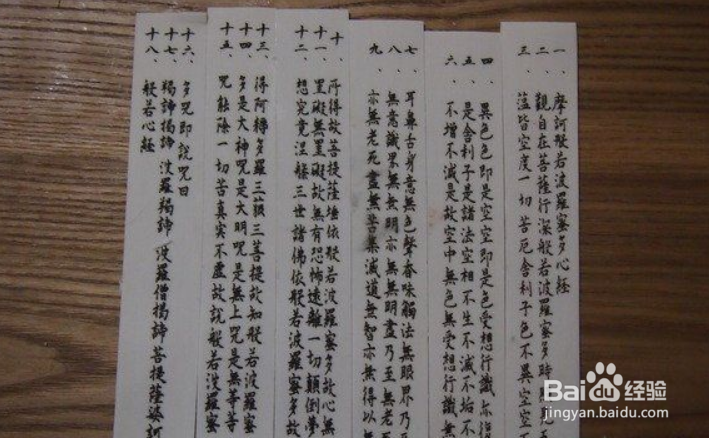 一、摩訶般若波羅蜜多心經
二、觀自在菩薩行深般若波羅蜜多時
三、蘊皆空度一切苦厄舍利子色不異空空
四、異色色即是空空即是色受想行識亦復
五、是舍利子是諸法空相不生不滅不垢不
六、不增不減是故空中無色無受想行識無
七、耳鼻舌身意無色聲香味觸法無眼界乃
八、無意識界無無明亦無無明盡乃至無老
九、亦無老死盡無苦集滅道無智亦無得以無
十、所得故菩提薩埵依般若波羅蜜多故心無
十一、罣礙無罣礙故無有恐怖遠離一切顛倒夢
十二、想究竟涅槃三世諸佛依般若波羅蜜多故
十三、得阿耨多羅三藐三菩提故知般若波羅蜜
十四、多是大神咒是大明咒是無上咒是無等等
十五、咒能除一切苦真實不虛故說般若波羅蜜
十六、多咒即說咒曰
十七、揭諦揭諦 波羅揭諦 波羅僧揭諦 菩提薩婆訶
十八、般若心經
Baidu 经验
jingyan.baidu.com